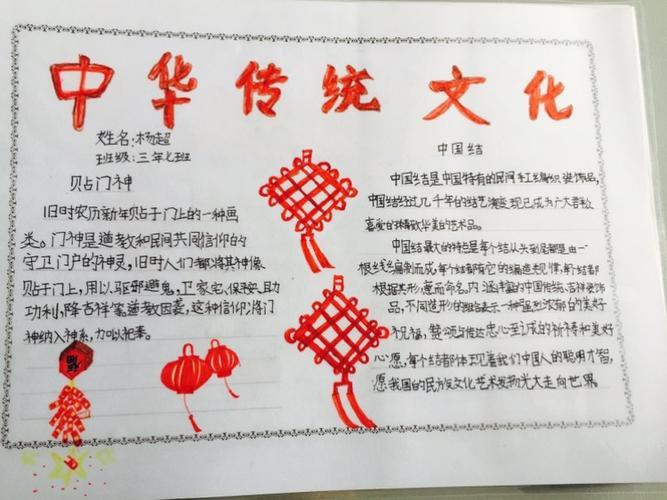 中华传统文化
姓名:杨超
班级:三年七班
贴门神
旧时农历新年贴于门上的一种画
类。门神是道教和民间共同信仰的
守卫门户的神灵,旧时人们都将其神像
贴于门上,用以驱邪避鬼,卫家宅,保平安,且功
功利,降吉祥等道教因萎,这种信仰,将门
神纳入神系,加以祀奉。
福
中国结
中国结是中国特有的民间手工编织装饰品,
中国结经过几千年的结艺演变,现已成为广大群众
喜爱的精致华美的艺术品。
中国结最大的特是每个结从头到尾都是由一
根丝线编制而成,每个结都有它的编造规律,每个结都
根据其形,意而命名,内涵丰富的中国传统,吉祥装饰
品,不同造形的结表示一种浓郁的美好
祝福,赞颂与传达忠心至诚的祈祷和美好
心愿,每个结都体现着我们中国人的聪明才智,
愿我国的民族文化艺术发扬光大走向世界